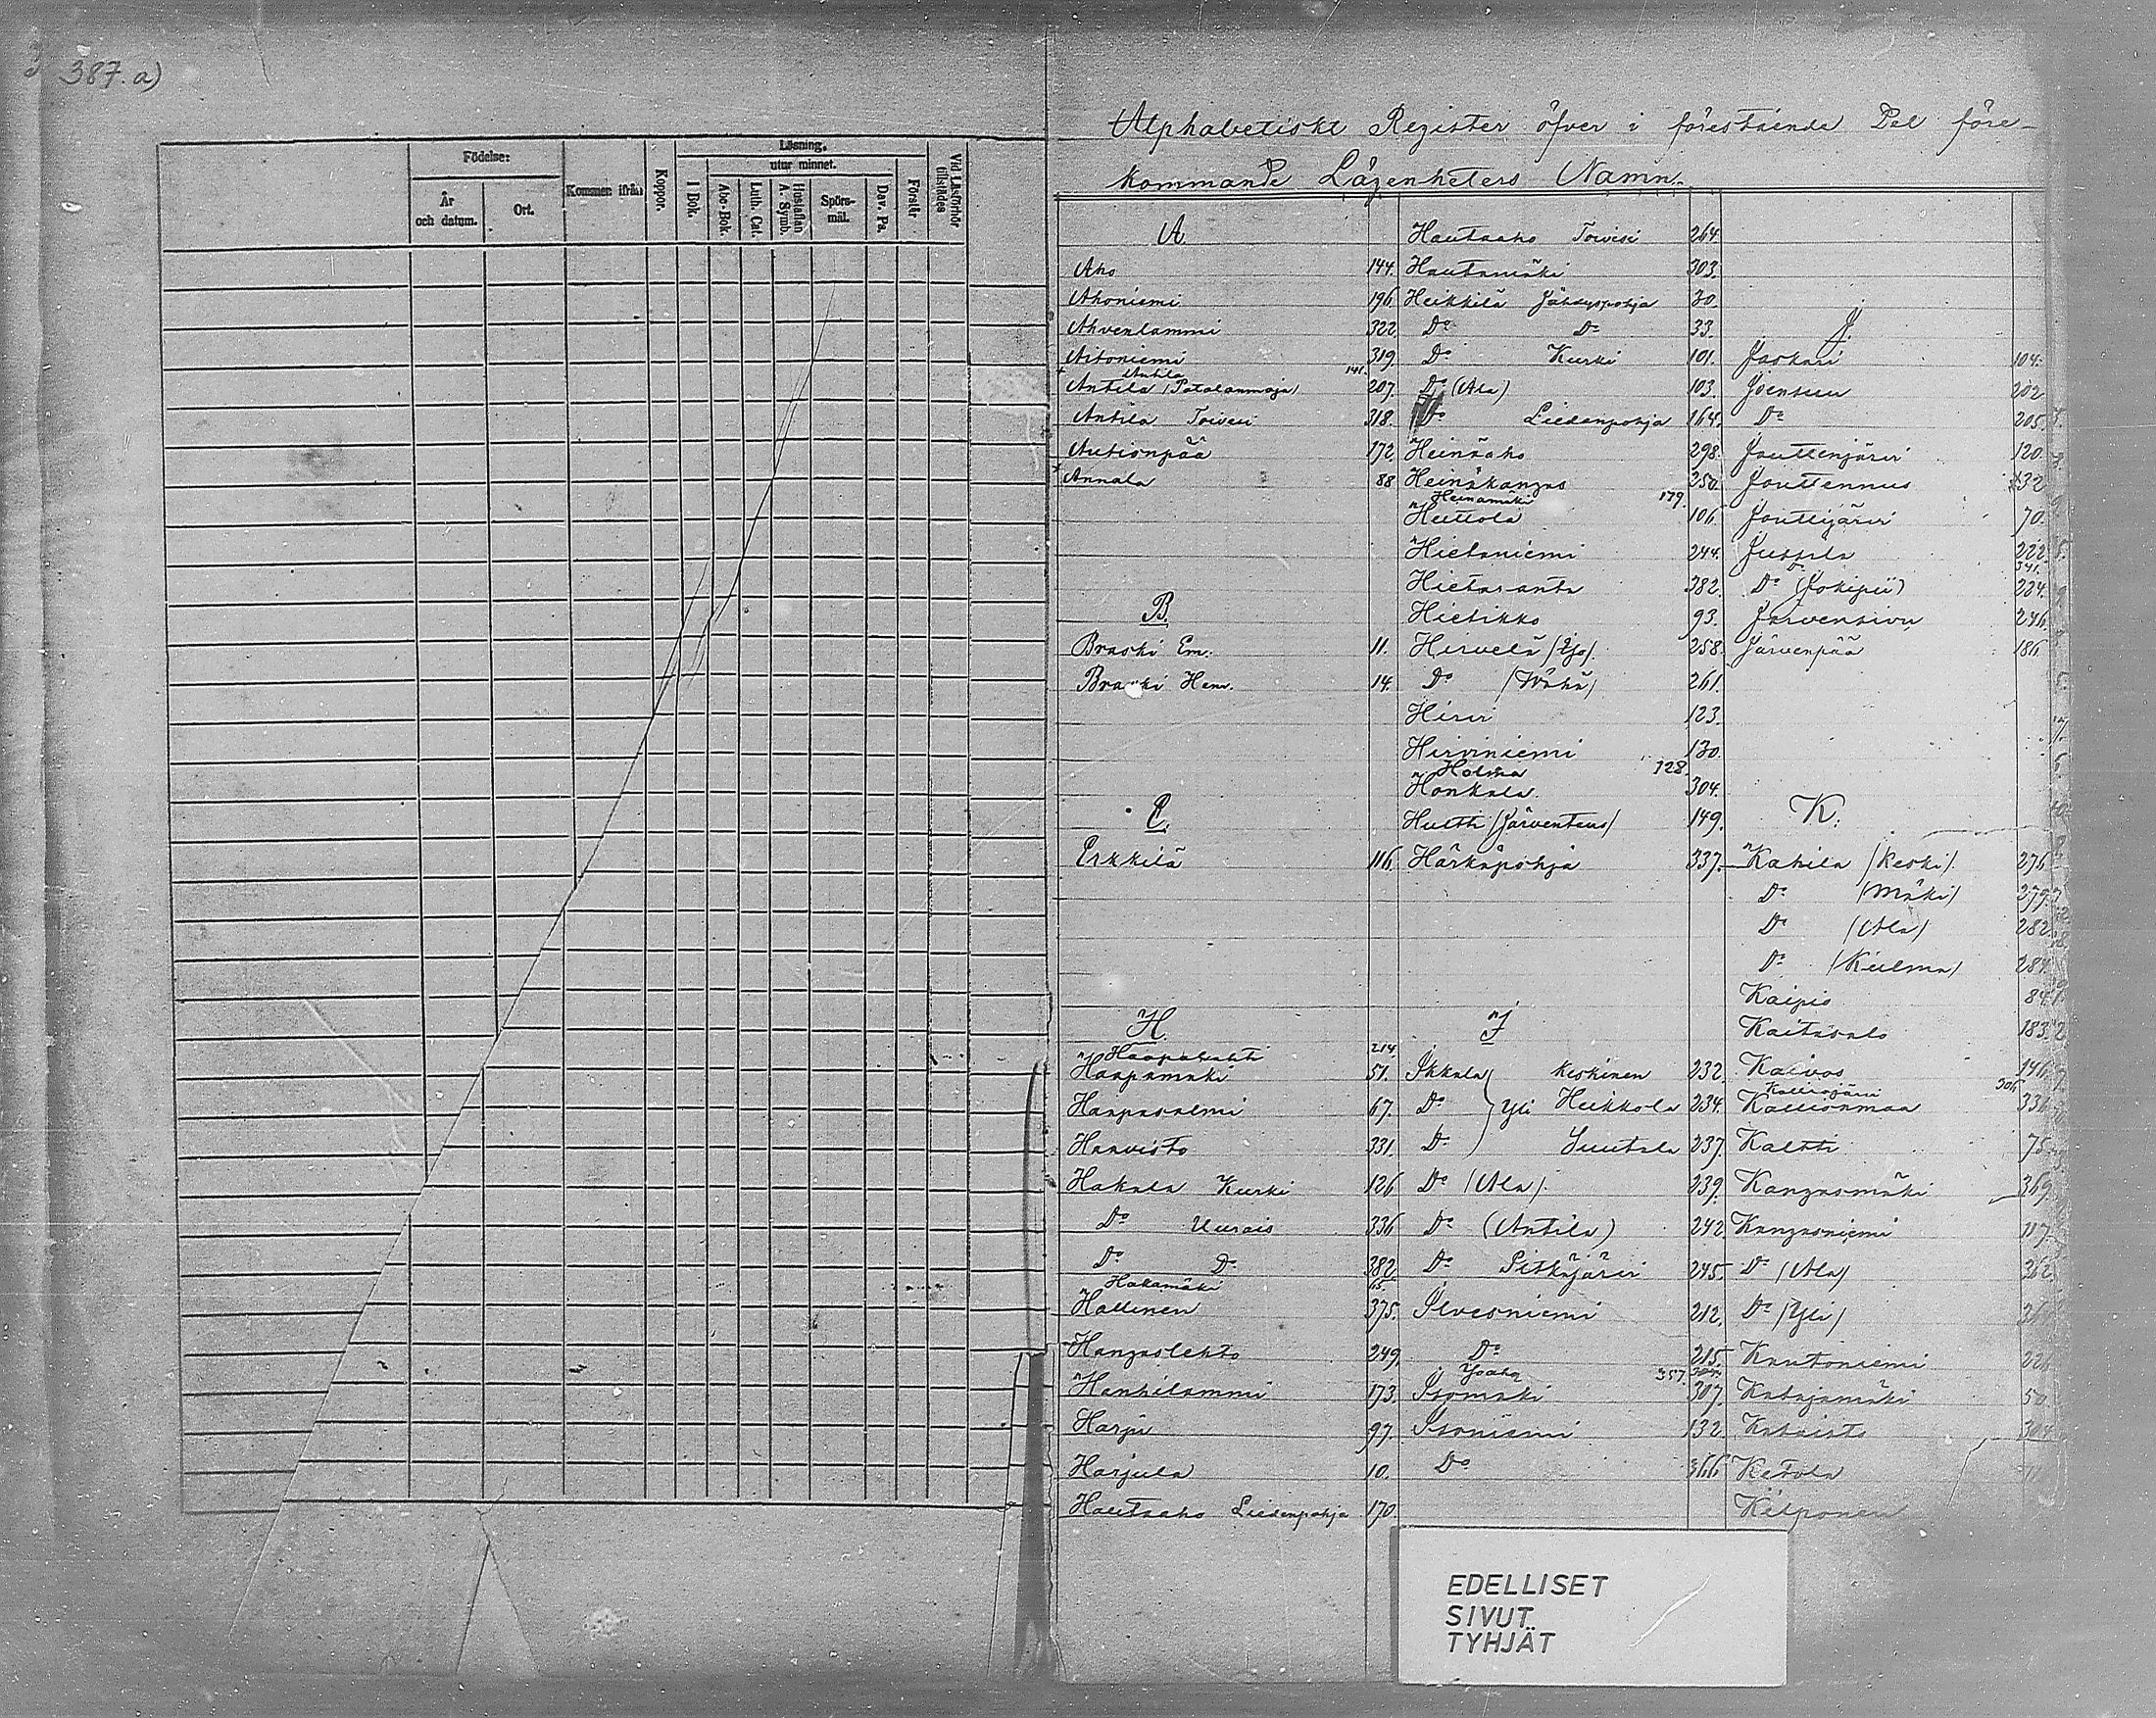 387. a)
Födelse:
År
och datum.
Ort.
Kommen ifrån
Koppor.
Läsning.
I Bok.
utur minnet.
Abc-Bok.
Luth. Cat.
Hustaflan
A. Symb.
Spörs-
mål.
Dav. Ps.
Förstår
Vid Läsförhör
tillstädes
Alphabetiskt Register öfver i förestående Del före-
kommande Lägenheters Namn.
A.
Aho 144.
Ahoniemi 196.
Ahvenlammi 322
Aitoniemi 319.
Antila 141.
Antila (Patalanmaja) 207.
Antila Toivesi 318.
Autionpää 172
Annala 88
B.
Braski Em. 11.
Braski Hem. 14.
E.
Erkkilä 116.
H.
Haapalahti 214.
Haapamäki 51.
Haapasalmi 67.
Haavisto 331.
Hakala Kurki 126
Do Uurais 336
Do Do 382
Hakamäki
Hallinen 375.
Hangaslehto 249.
Hanhilammi 173.
Harju 97.
Harjula 10.
Hautaaho Liedenpohja 170.
Hautaaho Toivesi 264.
Hautamäki 303.
Heikkilä Jähdyspohja 30.
Do Do 33.
Do Kurki 101.
Do (Ala) 103.
Do Liedenpohja 164.
Heinäaho 298.
Heinäkangas 250.
Heinämäki 179.
Heittola 106
Hietaniemi 244.
Hietaranta 382.
Hietikko 93.
Hirvelä (Yjo) 258.
Do (Wähä) 261.
Hirvi 123.
Hirviniemi 130.
Holma 128.
Honkala 304.
Hulth (Järventaus) 149.
Härkäpohja 337.
I
Ikkala Keskinen 232.
Do Yli Heikkola 234.
Do Juutala 237.
Do (Ala) 239.
Do (Antila) 242
Do Pitkäjärvi 245.
Ilvesniemi 212.
Do 215.
Isoaho 357.
Isomäki 307.
Isoniemi 132.
Do 366
J.
Jaskari 104.
Joensuu 202
Do 205.
Jouttenjärvi 120.
Jouttennus 132
Jouttijärvi 70.
Jussila 222
341.
Do (Jokipii) 224.
Järvensivu 246.
Järvenpää 186.
K.
Kahila (Keski) 276
Do (Mäki) 279.
Do (Ala) 282.
Do (Kulma) 284.
Kaipio 84.
Kaitasalo 183.
Kaivos 146.
Kalliojärvi 306
Kallionmaa 336
Kaltti 75.
Kangasmäki 369.
Kangasniemi 117.
Do (Ala) 362.
Do (Yli)
Kautoniemi
Katajamäki 50.
Katajisto
Ketola
Kelponen
EDELLISET
SIVUT
TYHJÄT